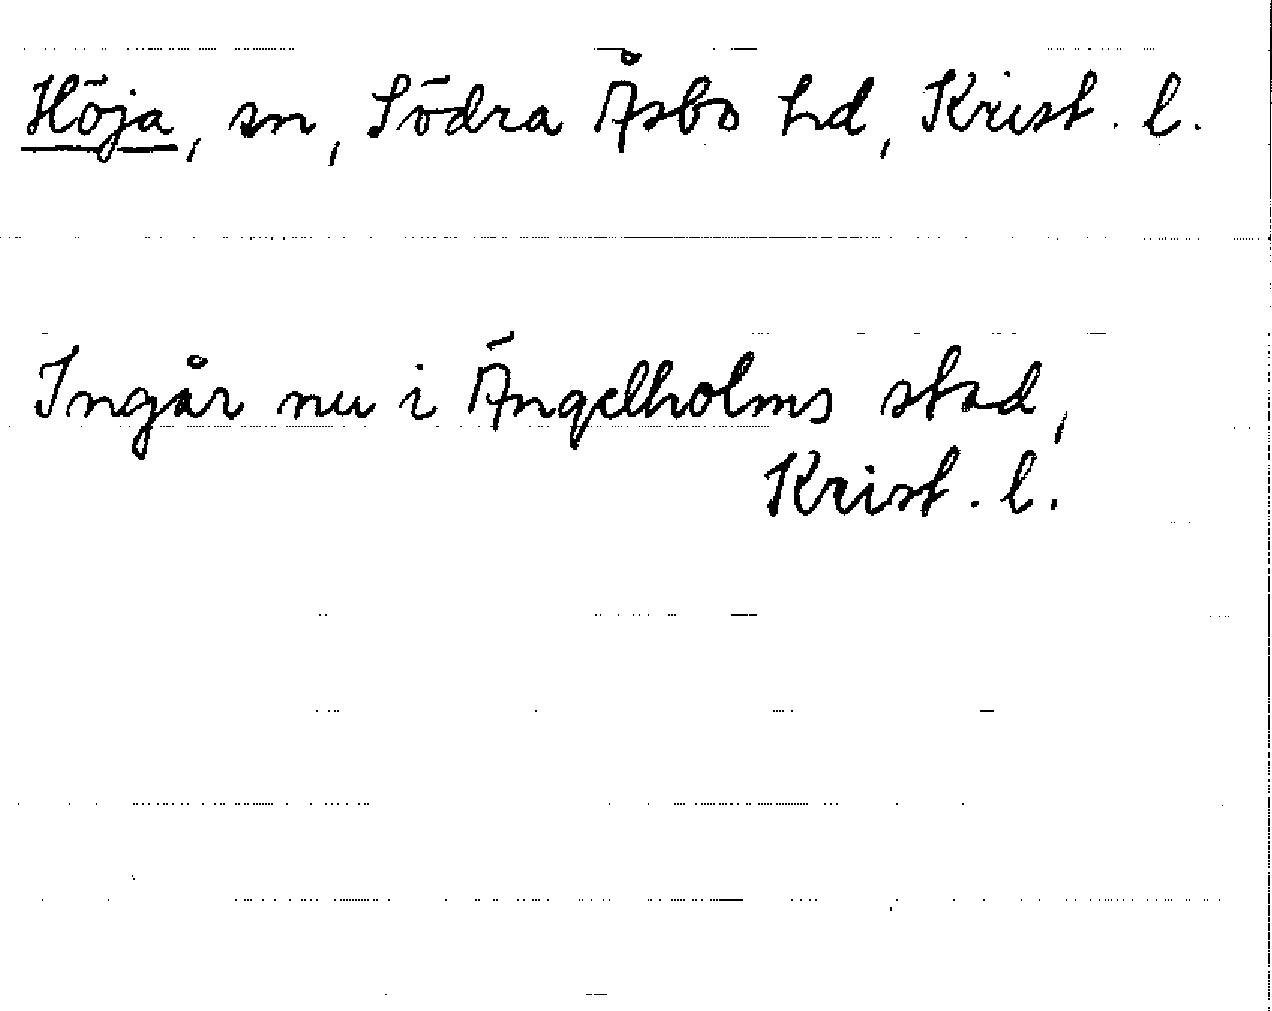 Höja, sn, Södra Åsbo hd, Krist. l.
Ingår nu i Ängelholms stad,
Krist. l.